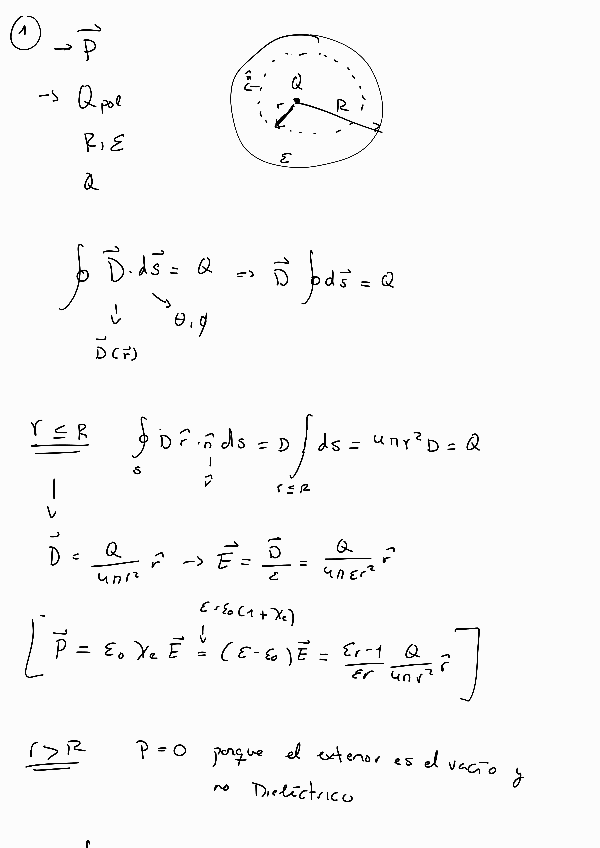 ①
→ P⃗
→ Q pol
R, ε
Q
n̂
Q
R
ε
∮ D⃗ · ds⃗ = Q => D⃗ ∮ ds⃗ = Q
↓ ↘ θ, φ
D⃗(r⃗)
r ≤ R ∮_S D r̂ · n̂ ds = D ∫_{r≤R} ds = 4πr² D = Q
r̂
↓
D⃗ = Q/(4πr²) r̂ → E⃗ = D⃗/ε = Q/(4πεr²) r̂
ε = ε₀(1 + χe)
↓
[ P⃗ = ε₀ χe E⃗ = (ε - ε₀) E⃗ = (εr - 1)/εr Q/(4πr²) r̂ ]
r > R P = 0 porque el exterior es el vacío y
no Dieléctrico